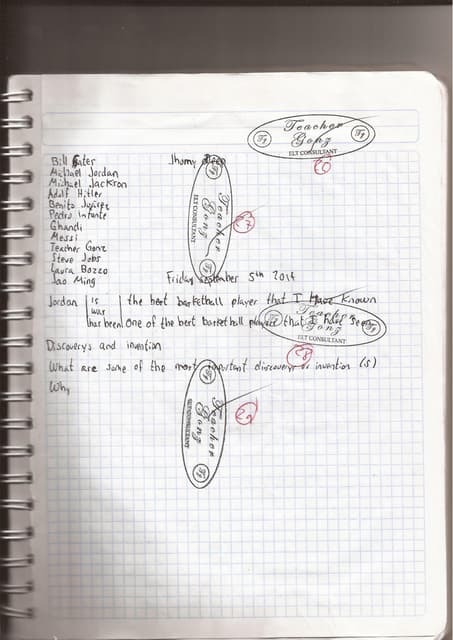 Teacher
Gonz
ELT CONSULTANT
Bill Gater
Jhonny Deep
Michael Jordan
Michael Jackson
Adolf Hitler
Benito Juarez
Pedro Infante
Ghandi
Messi
Teacher Gonz
Steve Jobs
Laura Bozzo
Jao Ming
Teacher
Gonz
ELT CONSULTANT
27
Friday september 5th 2014
Jordan
is the best basketball player that I Have known
was
has been one of the best basketball players that I had seen
Teacher
Gonz
ELT CONSULTANT
28
Discoverys and invention
What are some of the most important discoverys or invention (s)
Why
Teacher
Gonz
ELT CONSULTANT
29